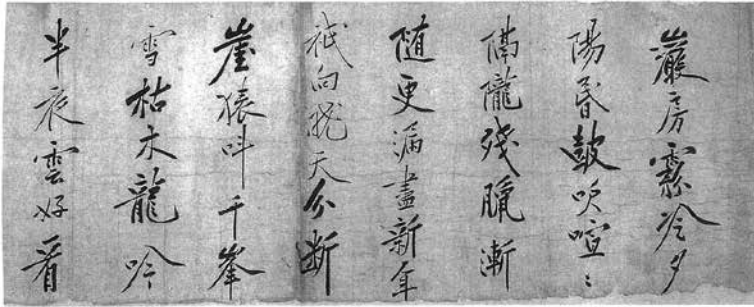 巖房冷夕
陽昏鼓吹喧〻
隔隴殘臘漸
随更漏盡新年
祇向曉天分断
崖猿叫千峯
雪枯木龍吟
半夜雲好看